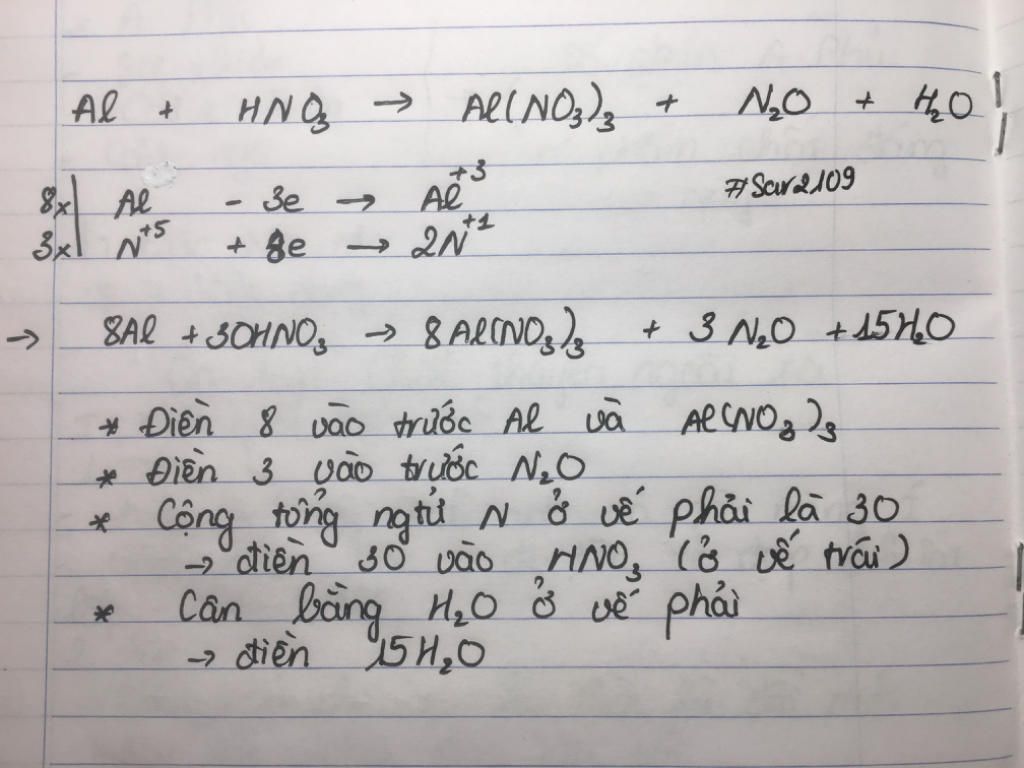 Al + HNO₃ → Al(NO₃)₃ + N₂O + H₂O
#Scur2109
8x| Al - 3e → Al⁺³
3x| N⁺⁵ + 8e → 2N⁺¹
→ 8Al + 30HNO₃ → 8Al(NO₃)₃ + 3N₂O + 15H₂O
* Điền 8 vào trước Al và Al(NO₃)₃
* Điền 3 vào trước N₂O
* Cộng tổng ngtử N ở vế phải là 30
→ điền 30 vào HNO₃ (ở vế trái)
* Cân bằng H₂O ở vế phải
→ điền 15H₂O